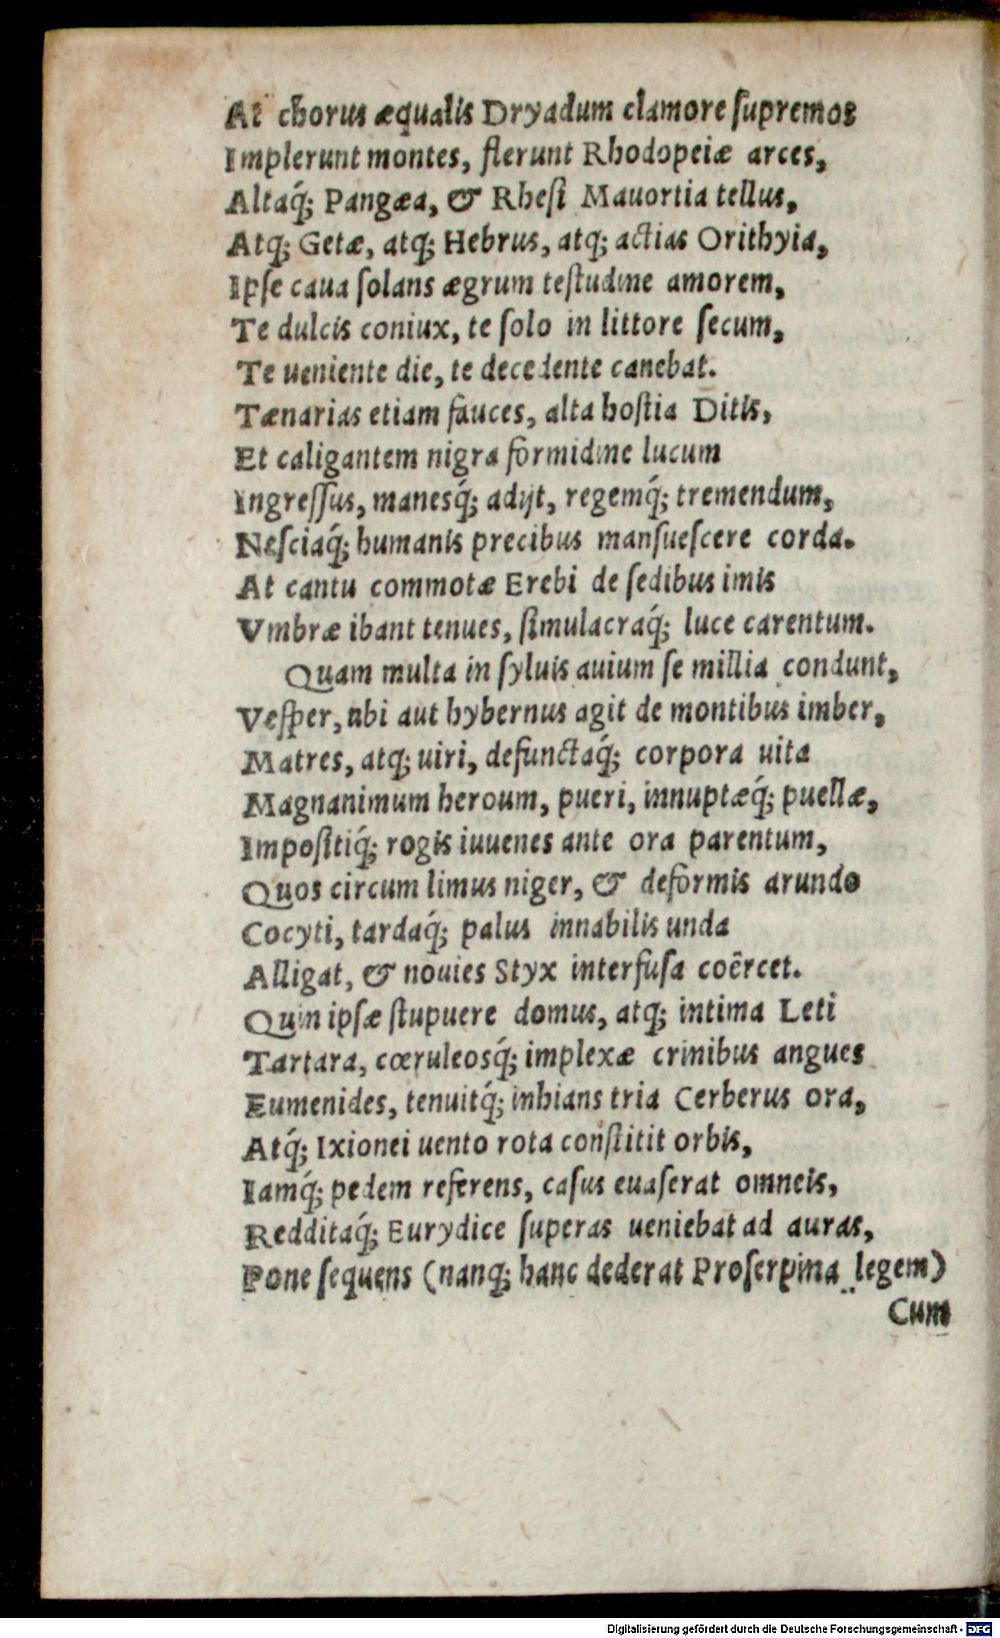 At chorus æqualis Dryadum clamore ſupremos
Implerunt montes, flerunt Rhodopeiæ arces,
Altaq́; Pangæa, & Rheſi Mauortia tellus,
Atq; Getæ, atq; Hebrus, atq; actias Orithyia,
Ipſe caua ſolans ægrum teſtudine amorem,
Te dulcis coniux, te ſolo in littore ſecum,
Te ueniente die, te decedente canebat.
Tænarias etiam fauces, alta hoſtia Ditis,
Et caligantem nigra formidine lucum
Ingreſſus, manesq́; adijt, regemq́; tremendum,
Neſciaq́; humanis precibus manſueſcere corda.
At cantu commotæ Erebi de ſedibus imis
Vmbræ ibant tenues, ſimulacraq́; luce carentum.
Quam multa in ſyluis auium ſe millia condunt,
Veſper, ubi aut hybernus agit de montibus imber,
Matres, atq; uiri, defunctaq́; corpora uita
Magnanimum heroum, pueri, innuptæq́; puellæ,
Impoſitiq́; rogis iuuenes ante ora parentum,
Quos circum limus niger, & deformis arundo
Cocyti, tardaq́; palus innabilis unda
Alligat, & nouies Styx interfuſa coêrcet.
Quin ipſæ ſtupuere domus, atq; intima Leti
Tartara, cœruleosq́; implexæ crinibus angues
Eumenides, tenuitq́; inhians tria Cerberus ora,
Atq́; Ixionei uento rota conſtitit orbis,
Iamq́; pedem referens, caſus euaſerat omneis,
Redditaq́; Eurydice ſuperas ueniebat ad auras,
Pone ſequens (nanq; hanc dederat Proſerpina legem)
Cum
Digitalisierung gefördert durch die Deutsche Forschungsgemeinschaft - DFG